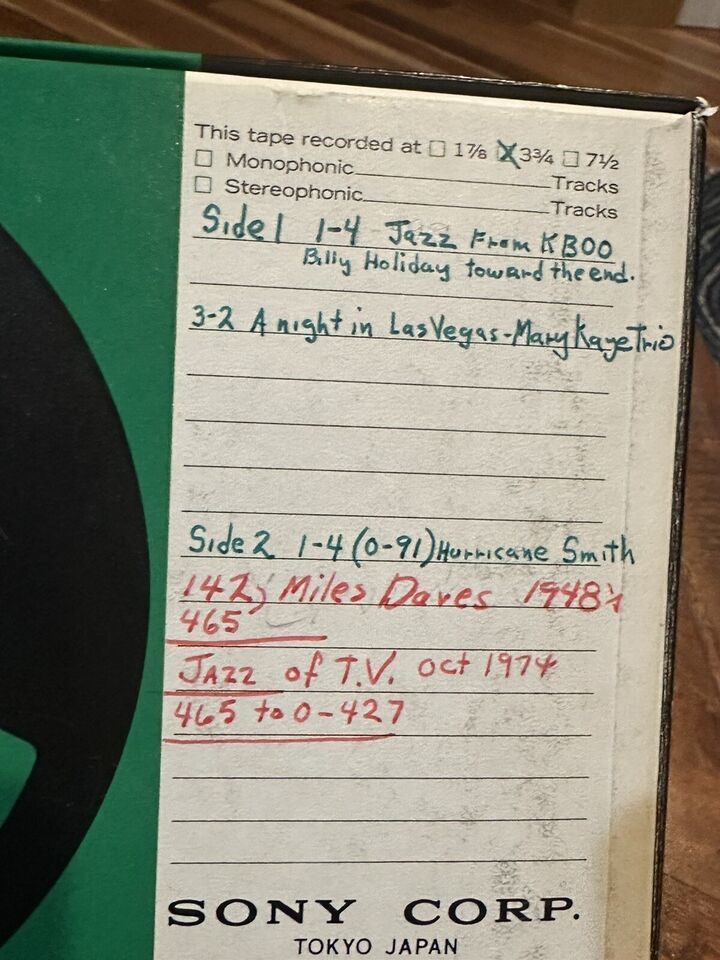 This tape recorded at ☐ 1⅞ ☒ 3¾ ☐ 7½
☐ Monophonic Tracks
☐ Stereophonic Tracks
Side 1 1-4 Jazz From KBOO
Billy Holiday toward the end.
3-2 A night in Las Vegas - Mary Kaye Trio
Side 2 1-4 (0-91) Hurricane Smith
142, Miles Daves 1948's
465
JAZZ of T.V. oct 1974
465 to 0-427
SONY CORP.
TOKYO JAPAN